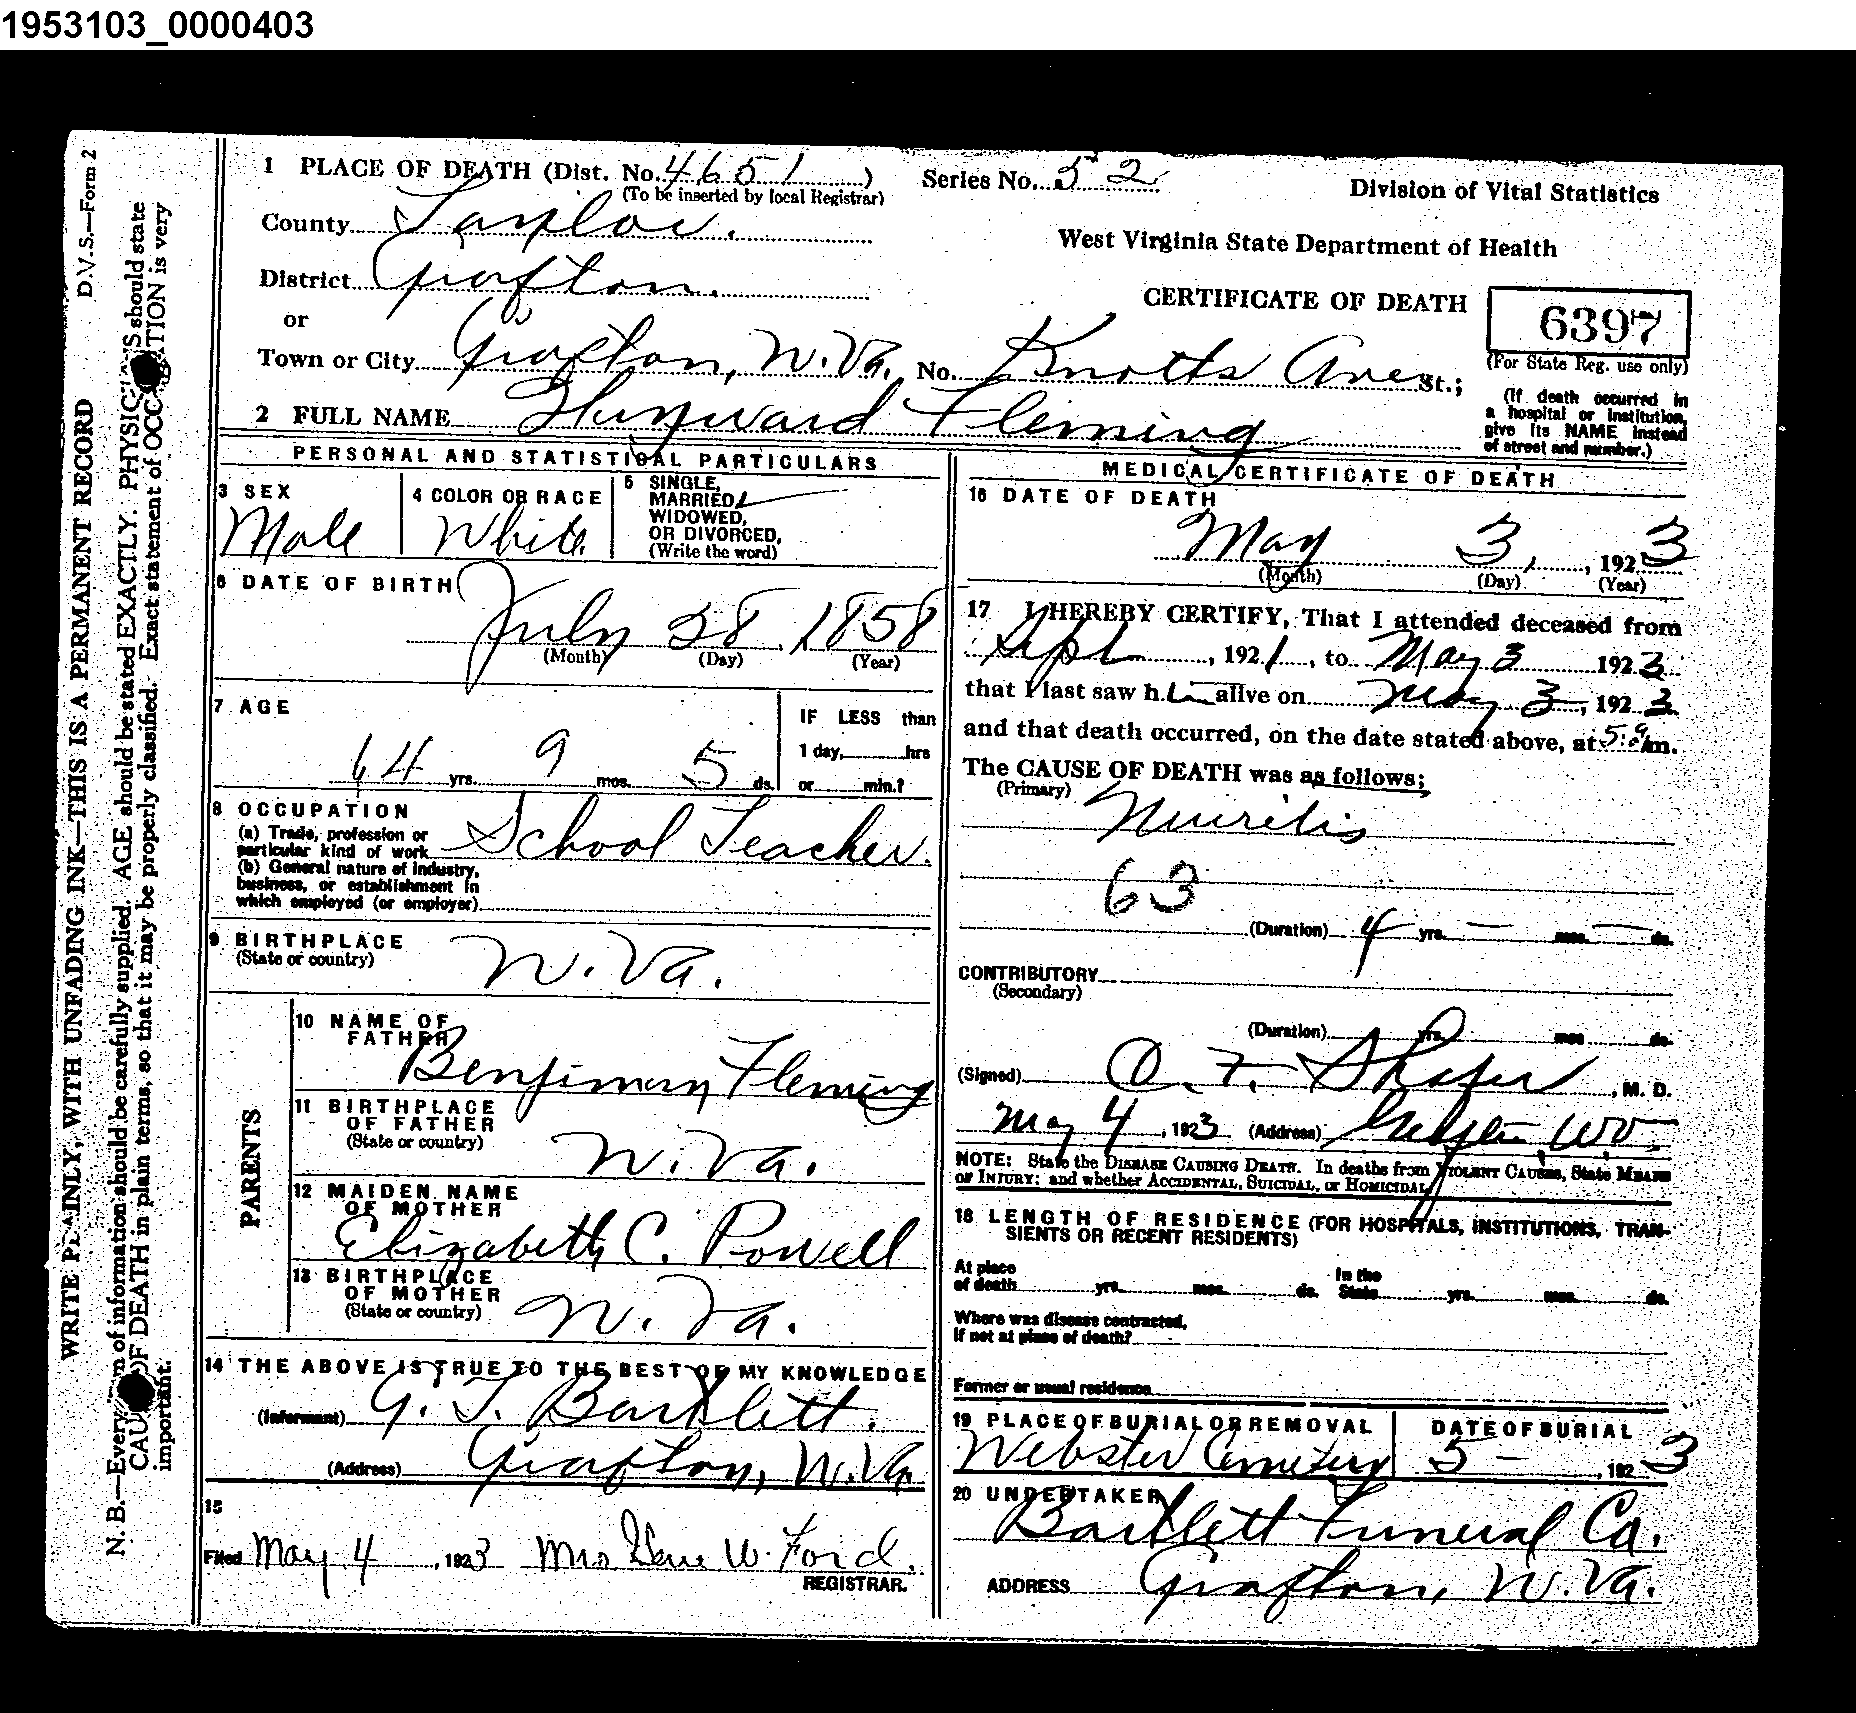 1953103_0000403
D.V.S.—Form 2
WRITE PLAINLY, WITH UNFADING INK—THIS IS A PERMANENT RECORD
N. B.—Every item of information should be carefully supplied. AGE should be stated EXACTLY. PHYSICIANS should state
CAUSE OF DEATH in plain terms, so that it may be properly classified. Exact statement of OCCUPATION is very
important.
1 PLACE OF DEATH (Dist. No. 4651 )
(To be inserted by local Registrar)
Series No. 52
Division of Vital Statistics
County Taylor.
West Virginia State Department of Health
District Grafton.
CERTIFICATE OF DEATH
6397
(For State Reg. use only)
or
Town or City Grafton, W.Va. No. Knotts Ave St.;
(If death occurred in
a hospital or institution,
give its NAME instead
of street and number.)
2 FULL NAME Fleming
PERSONAL AND STATISTICAL PARTICULARS
3 SEX
Male
4 COLOR OR RACE
White
5 SINGLE,
MARRIED,
WIDOWED,
OR DIVORCED,
(Write the word)
6 DATE OF BIRTH
July 28 1858
(Month) (Day) (Year)
7 AGE
64 yrs. 9 mos. 5 ds.
IF LESS than
1 day, hrs
or min.?
8 OCCUPATION
(a) Trade, profession or
particular kind of work School Teacher.
(b) General nature of industry,
business, or establishment in
which employed (or employer)
9 BIRTHPLACE
(State or country) W.Va.
PARENTS
10 NAME OF
FATHER
Benjiman Fleming
11 BIRTHPLACE
OF FATHER
(State or country) W.Va.
12 MAIDEN NAME
OF MOTHER
Elizabeth C. Powell
13 BIRTHPLACE
OF MOTHER
(State or country) W. Va.
14 THE ABOVE IS TRUE TO THE BEST OF MY KNOWLEDGE
(Informant) G. T. Bartlett.
(Address) Grafton, W.Va
15
Filed May 4, 1923 Mrs W. Ford.
REGISTRAR.
MEDICAL CERTIFICATE OF DEATH
16 DATE OF DEATH
May 3, 1923
(Month) (Day) (Year)
17 I HEREBY CERTIFY, That I attended deceased from
Sept, 1921, to May 3 1923
that I last saw h alive on May 3, 1923
and that death occurred, on the date stated above, at m.
The CAUSE OF DEATH was as follows:
(Primary)
Neuritis
63
(Duration) 4 yrs. — mos. — ds.
CONTRIBUTORY
(Secondary)
(Duration) yrs. mos ds.
(Signed) Shafer, M. D.
May 4, 1923 (Address) Grafton, W.V.
NOTE: State the DISEASE CAUSING DEATH. In deaths from VIOLENT CAUSES, State MEANS
OF INJURY; and whether ACCIDENTAL, SUICIDAL, or HOMICIDAL
18 LENGTH OF RESIDENCE (FOR HOSPITALS, INSTITUTIONS, TRAN-
SIENTS OR RECENT RESIDENTS)
At place
of death yrs. mos. ds.
In the
State yrs. mos. ds.
Where was disease contracted,
if not at place of death?
Former or usual residence
19 PLACE OF BURIAL OR REMOVAL
Webster Cemetery
DATE OF BURIAL
5 — , 1923
20 UNDERTAKER
Bartlett Funeral Co.
ADDRESS Grafton, W.Va.